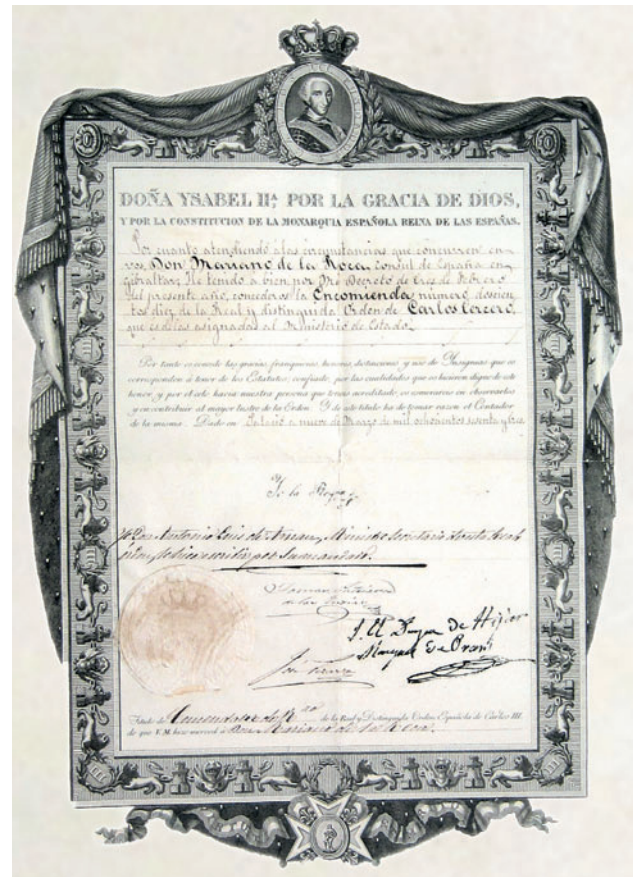 DOÑA YSABEL II.ª POR LA GRACIA DE DIOS,
Y POR LA CONSTITUCION DE LA MONARQUIA ESPAÑOLA REINA DE LAS ESPAÑAS.
Por cuanto atendiendo á las circunstancias que concurren en
vos, Don Mariano de la Roca, Consul de España en
Gibraltar; He tenido a bien por Mi Decreto de tres de Febrero
del presente año, concederos la Encomienda número doscien
tos diez de la Real y distinguida Orden de Carlos tercero,
que es de las asignadas al Ministerio de Estado.
Por tanto os concedo las gracias, franquicias, honores, distinciones y uso de Insignias que os
corresponden á tenor de los Estatutos, confiando, por las cualidades que os hicieron digno de este
honor, y por el celo hacia nuestra persona que teneis acreditado, os esmerareis en observarlos
y en contribuir al mayor lustre de la Orden. Y de este título ha de tomar razon el Contador
de la misma. Dado en Palacio a nueve de Marzo de mil ochocientos sesenta y tres
Yo la Reyna
Yo Don Antonio Luis de Arnau, Ministro Secretario
por su mandado.
J. El Duque de Hijar
Marqués de Orani
Título de Comendador de N.º de la Real y Distinguida Orden Española de Carlos III
de que V.M. hace merced á Don Mariano de la Roca.